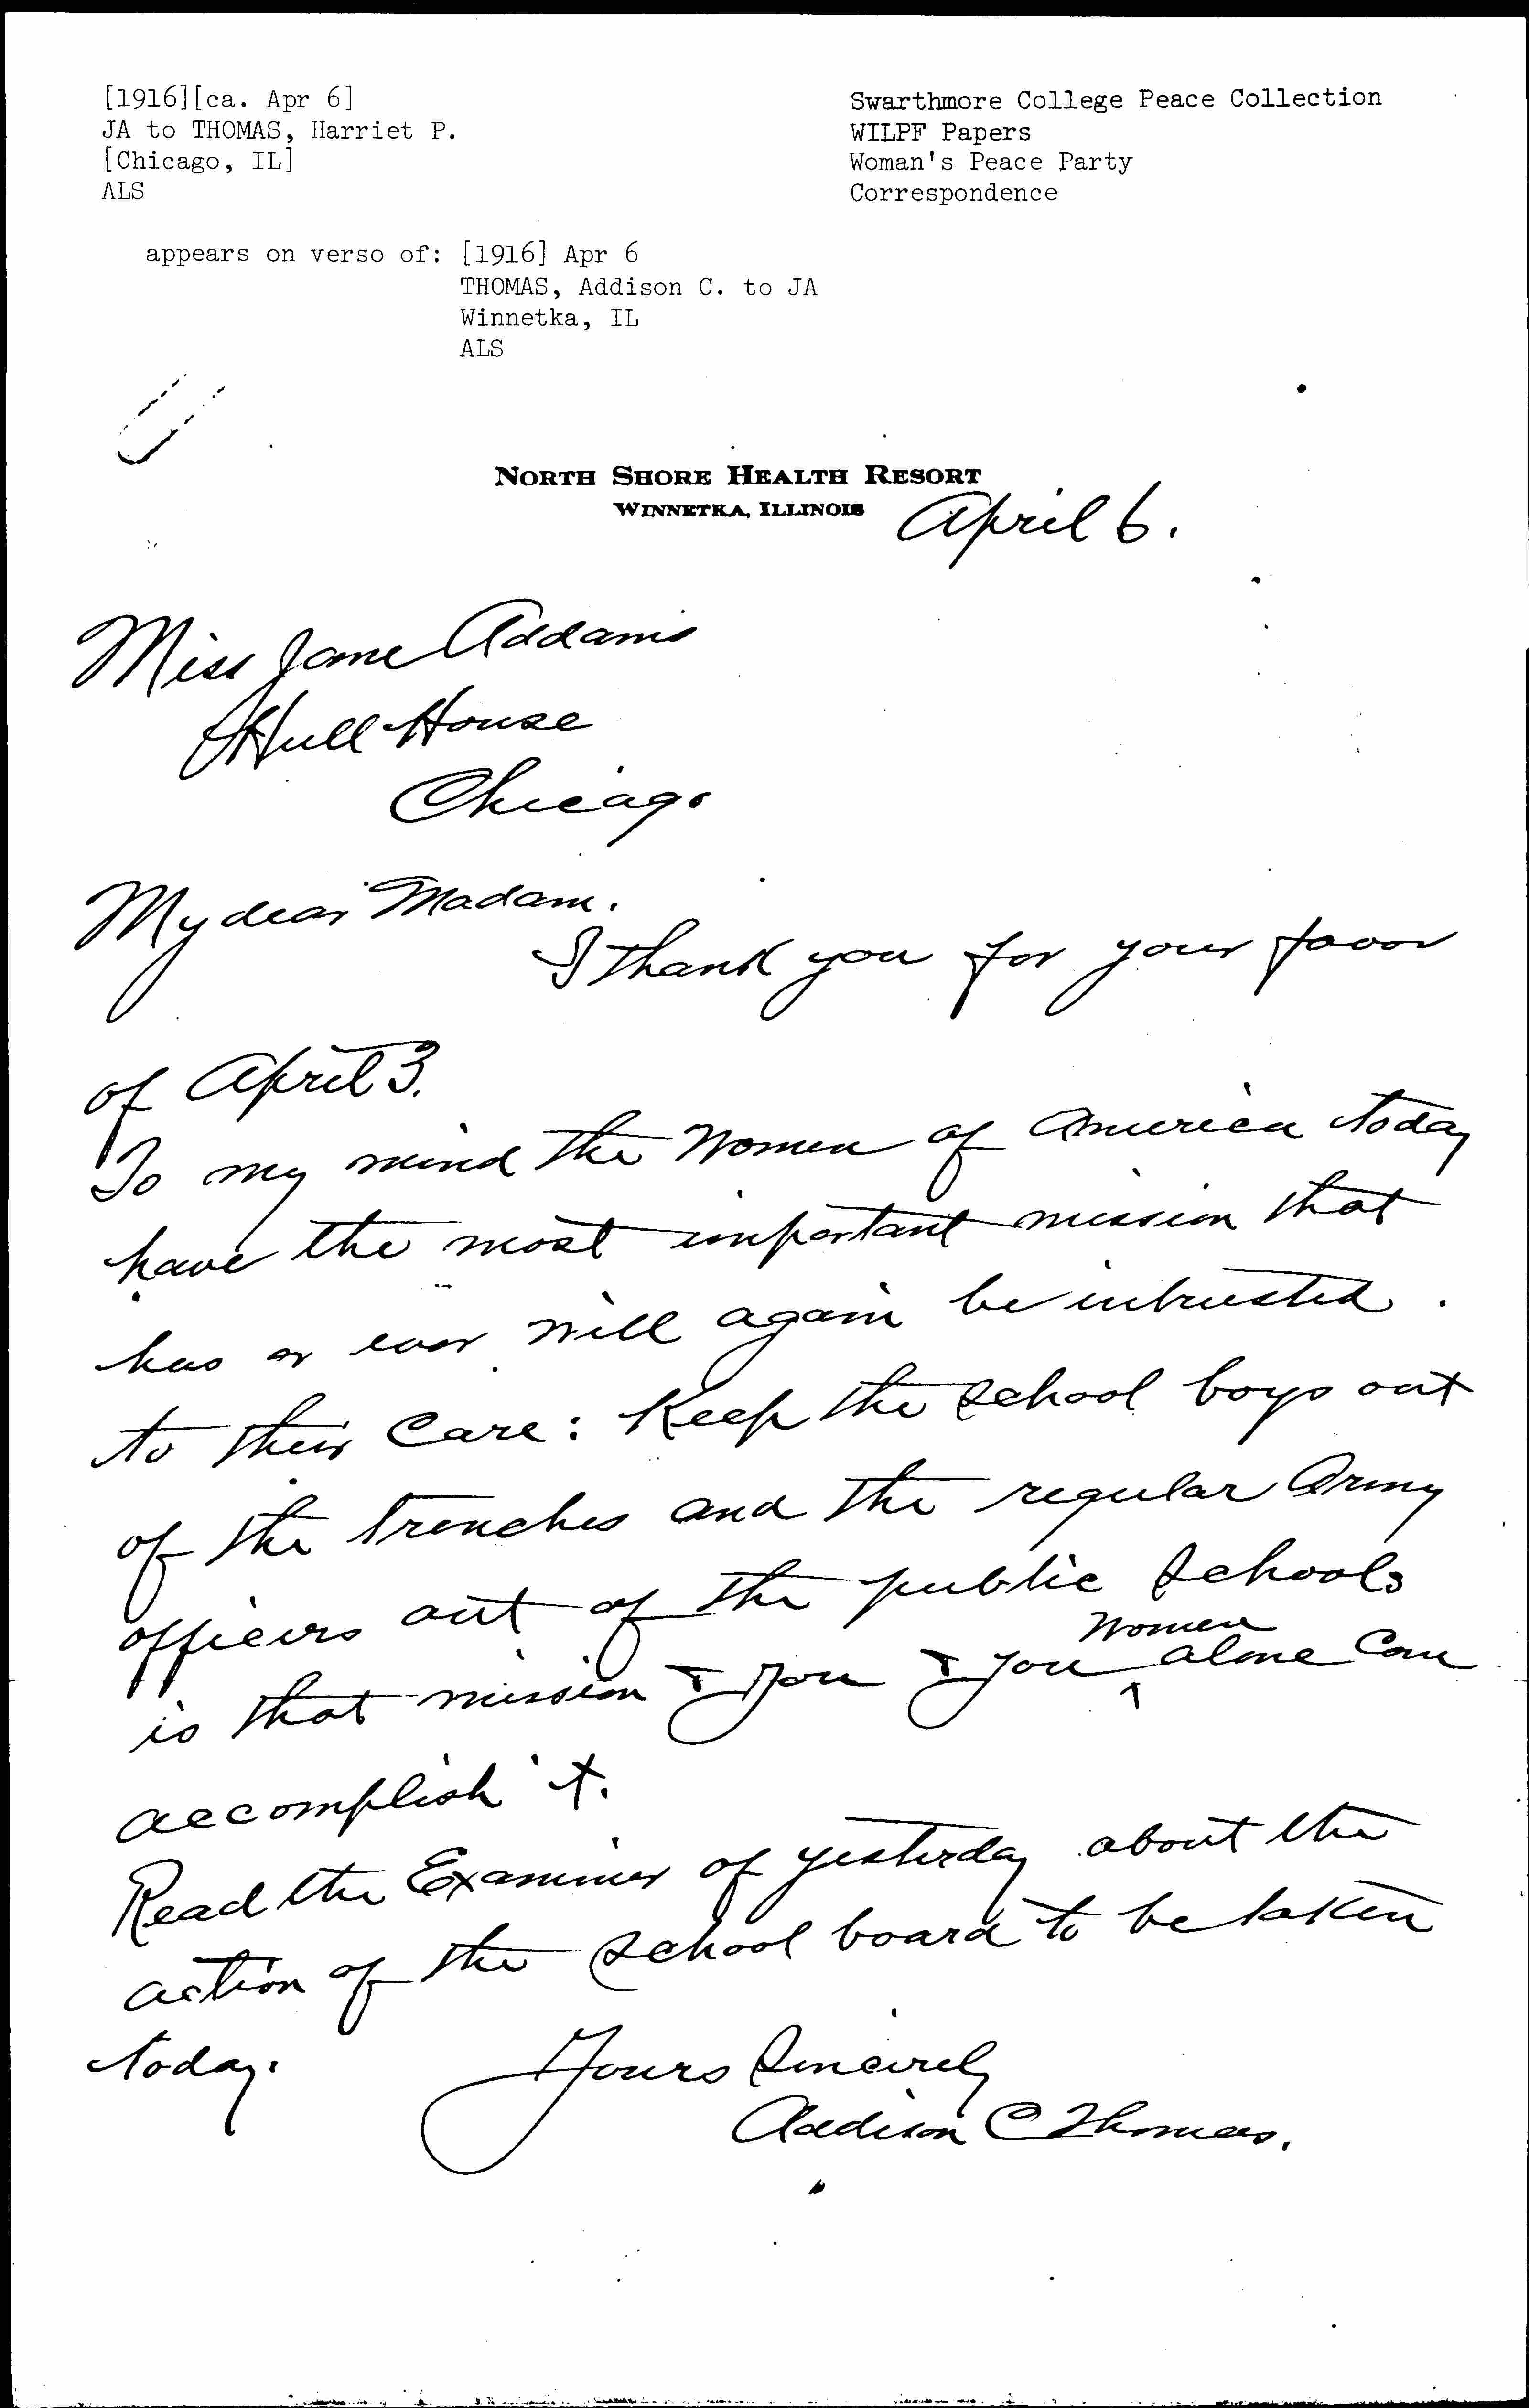 [1916][ca. Apr 6]
JA to THOMAS, Harriet P.
[Chicago, IL]
ALS
Swarthmore College Peace Collection
WILPF Papers
Woman's Peace Party
Correspondence
appears on verso of: [1916] Apr 6
THOMAS, Addison C. to JA
Winnetka, IL
ALS
NORTH SHORE HEALTH RESORT
WINNETKA, ILLINOIS
April 6.
Miss Jane Addams
Hull House
Chicago
My dear Madam.
I thank you for your favor
of April 3.
To my mind the Women of America today
have the most important mission that
has or ever will again be intrusted.
to their Care: Keep the school boys out
of the trenches and the regular Army
officers out of the public schools
is that mission & you & you women alone Can
accomplish it.
Read the Examiner of yesterday about the
action of the school board to be taken
today.
Yours Sincerely
Addison C Thomas.